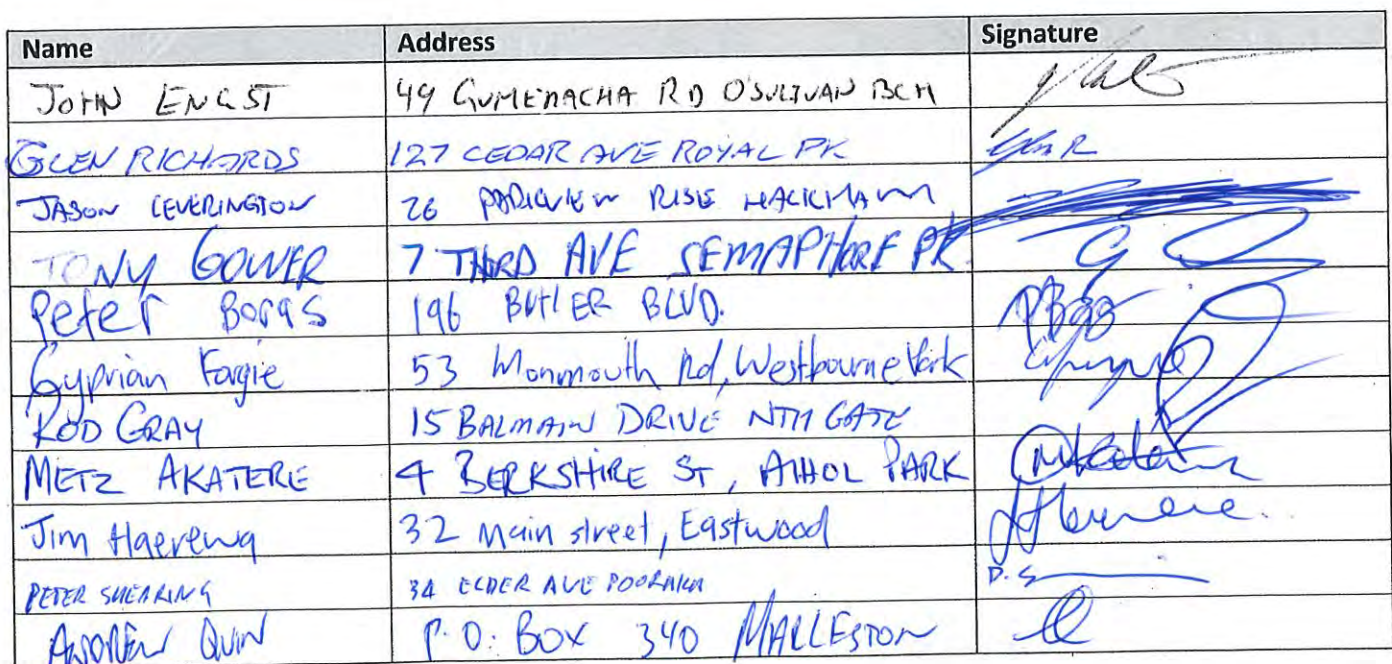 Name Address Signature
JOHN ENGST 49 GUMERACHA RD O'SULIVAN BCH
GLEN RICHARDS 127 CEDAR AVE ROYAL PK
JASON LEVERINGTON 26 RISE HACKHAM
TONY GOWER 7 THIRD AVE SEMAPHORE PK
Peter Boras 196 BUTLER BLVD.
Gyprian Fargie 53 Monmouth Rd, Westbourne Park
ROD GRAY 15 BALMAIN DRIVE NTH GATE
METZ AKATERE 4 BERKSHIRE ST, ATHOL PARK
Jim Haerewa 32 Main street, Eastwood
PETER SHEARING 34 ELDER AVE POORAKA
ANDREW QUIN P.O. BOX 340 MARLESTON